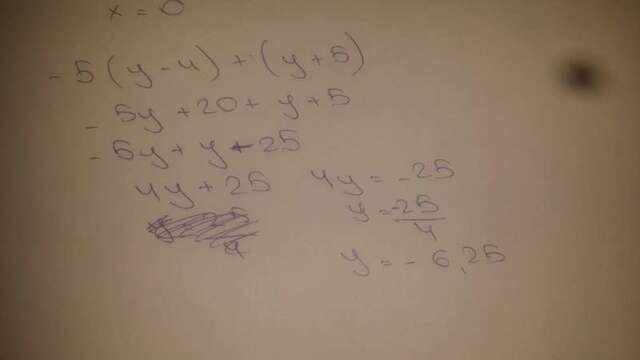 x = 0
- 5 (y - 4) + (y + 5)
- 5y + 20 + y + 5
- 5y + y + 25
4y + 25
4y = -25
y = -25/4
y = - 6,25